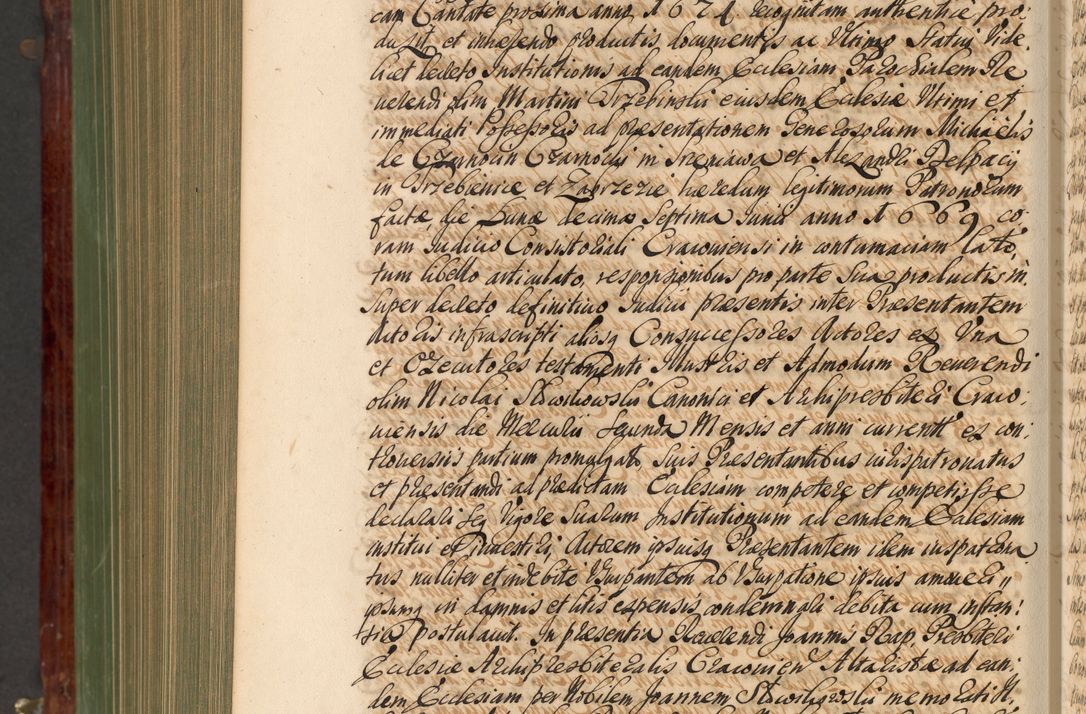 cam Cantate proxima anno 1624. recognitam authenticè pro-
duxit, et inhærendo productis documentis ac Ultimo Statui Vide-
licet decreto Institutionis ad eandem Ecclesiam Parochialem Re
verendi olim Martini Trzebinski eiusdem Ecclesiæ Ultimi et
immediati Possessoris ad præsentationem Generosorum Michaëlis
de Czarnocin Czarnocki in Sreniawa et Alexandri Relpacij
in Trzebienice et Zabrzezie hæredum legitimorum Patronorum
factæ, die Lunæ decima Septima Junij anno 1669 co-
ram Judicio Consistoriali Cracoviensi in contumaciam lato,
tum libello articulato, responsionibus pro parte sua productis in-
super decreto definitivo Judicij præsentis inter Præsentantem
Actoris infrascripti aliosq Consuccessores Actores ex Una
et Executores testamenti Illustris et Admodum Reverendi
olim Nicolai Słwilkowski Canonici et Archipresbiteri Craco-
viensis die Mercurij Secunda Mensis et anni currentt ex con-
troversiis partium promulgato, suis Præsentantibus iurispatronatus
et præsentandi ad prædictam Ecclesiam competere et competijsse
declarari seq Vigore suarum Institutionum ad eandem Ecclesiam
institui et investiri, Actorem ipsiusq Præsentantem idem iuspatrona
tus nulliter et indebitè Usurpantem ab Usurpatione ipsius amoveri
ipsumq in damnis et litis expensis condemnari debita cum instan-
tia postulavit. In præsentia Reverendi Joannis Rap Presbiteri
Ecclesiæ Archipresbiteralis Cracovien Altaristæ ad ean-
dem Ecclesiam per Nobilem Joannem Słwilkowski memorati Il.